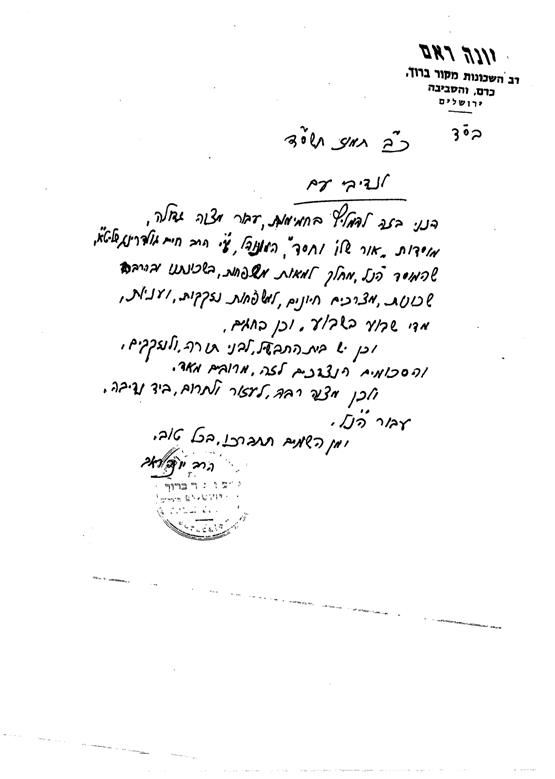 יונה ראם
רב השכונות מקור ברוך,
כרם, והסביבה
ירושלים
בס"ד
כ"ב תמוז תשס"ד
לנדיבי עם
הנני בזה להמליץ בחמימות, עבור מצוה גדולה,
מוסדות "אור שלו' וחסד", המנוהל, ע"י הרב חיים גולדרינג שליט"א,
שהמוסד הנ"ל, מחלק למאות משפחות, בשכונתנו ובהרבה
שכונות, מצרכים חיונים, למשפחות נזקקות, ועניות,
מדי שבוע בשבוע, וכן בחגים,
וכן יש בית התבשיל, לבני תורה, ולנזקקים,
והסכומים הנצרכים לזה, מרובים מאד.
ולכן מצוה רבה, לעזור ולתרום, ביד נדיבה,
עבור הנ"ל.
ומן השמים תתברכו, בכל טוב.
הרב יונה ראם
ברוך